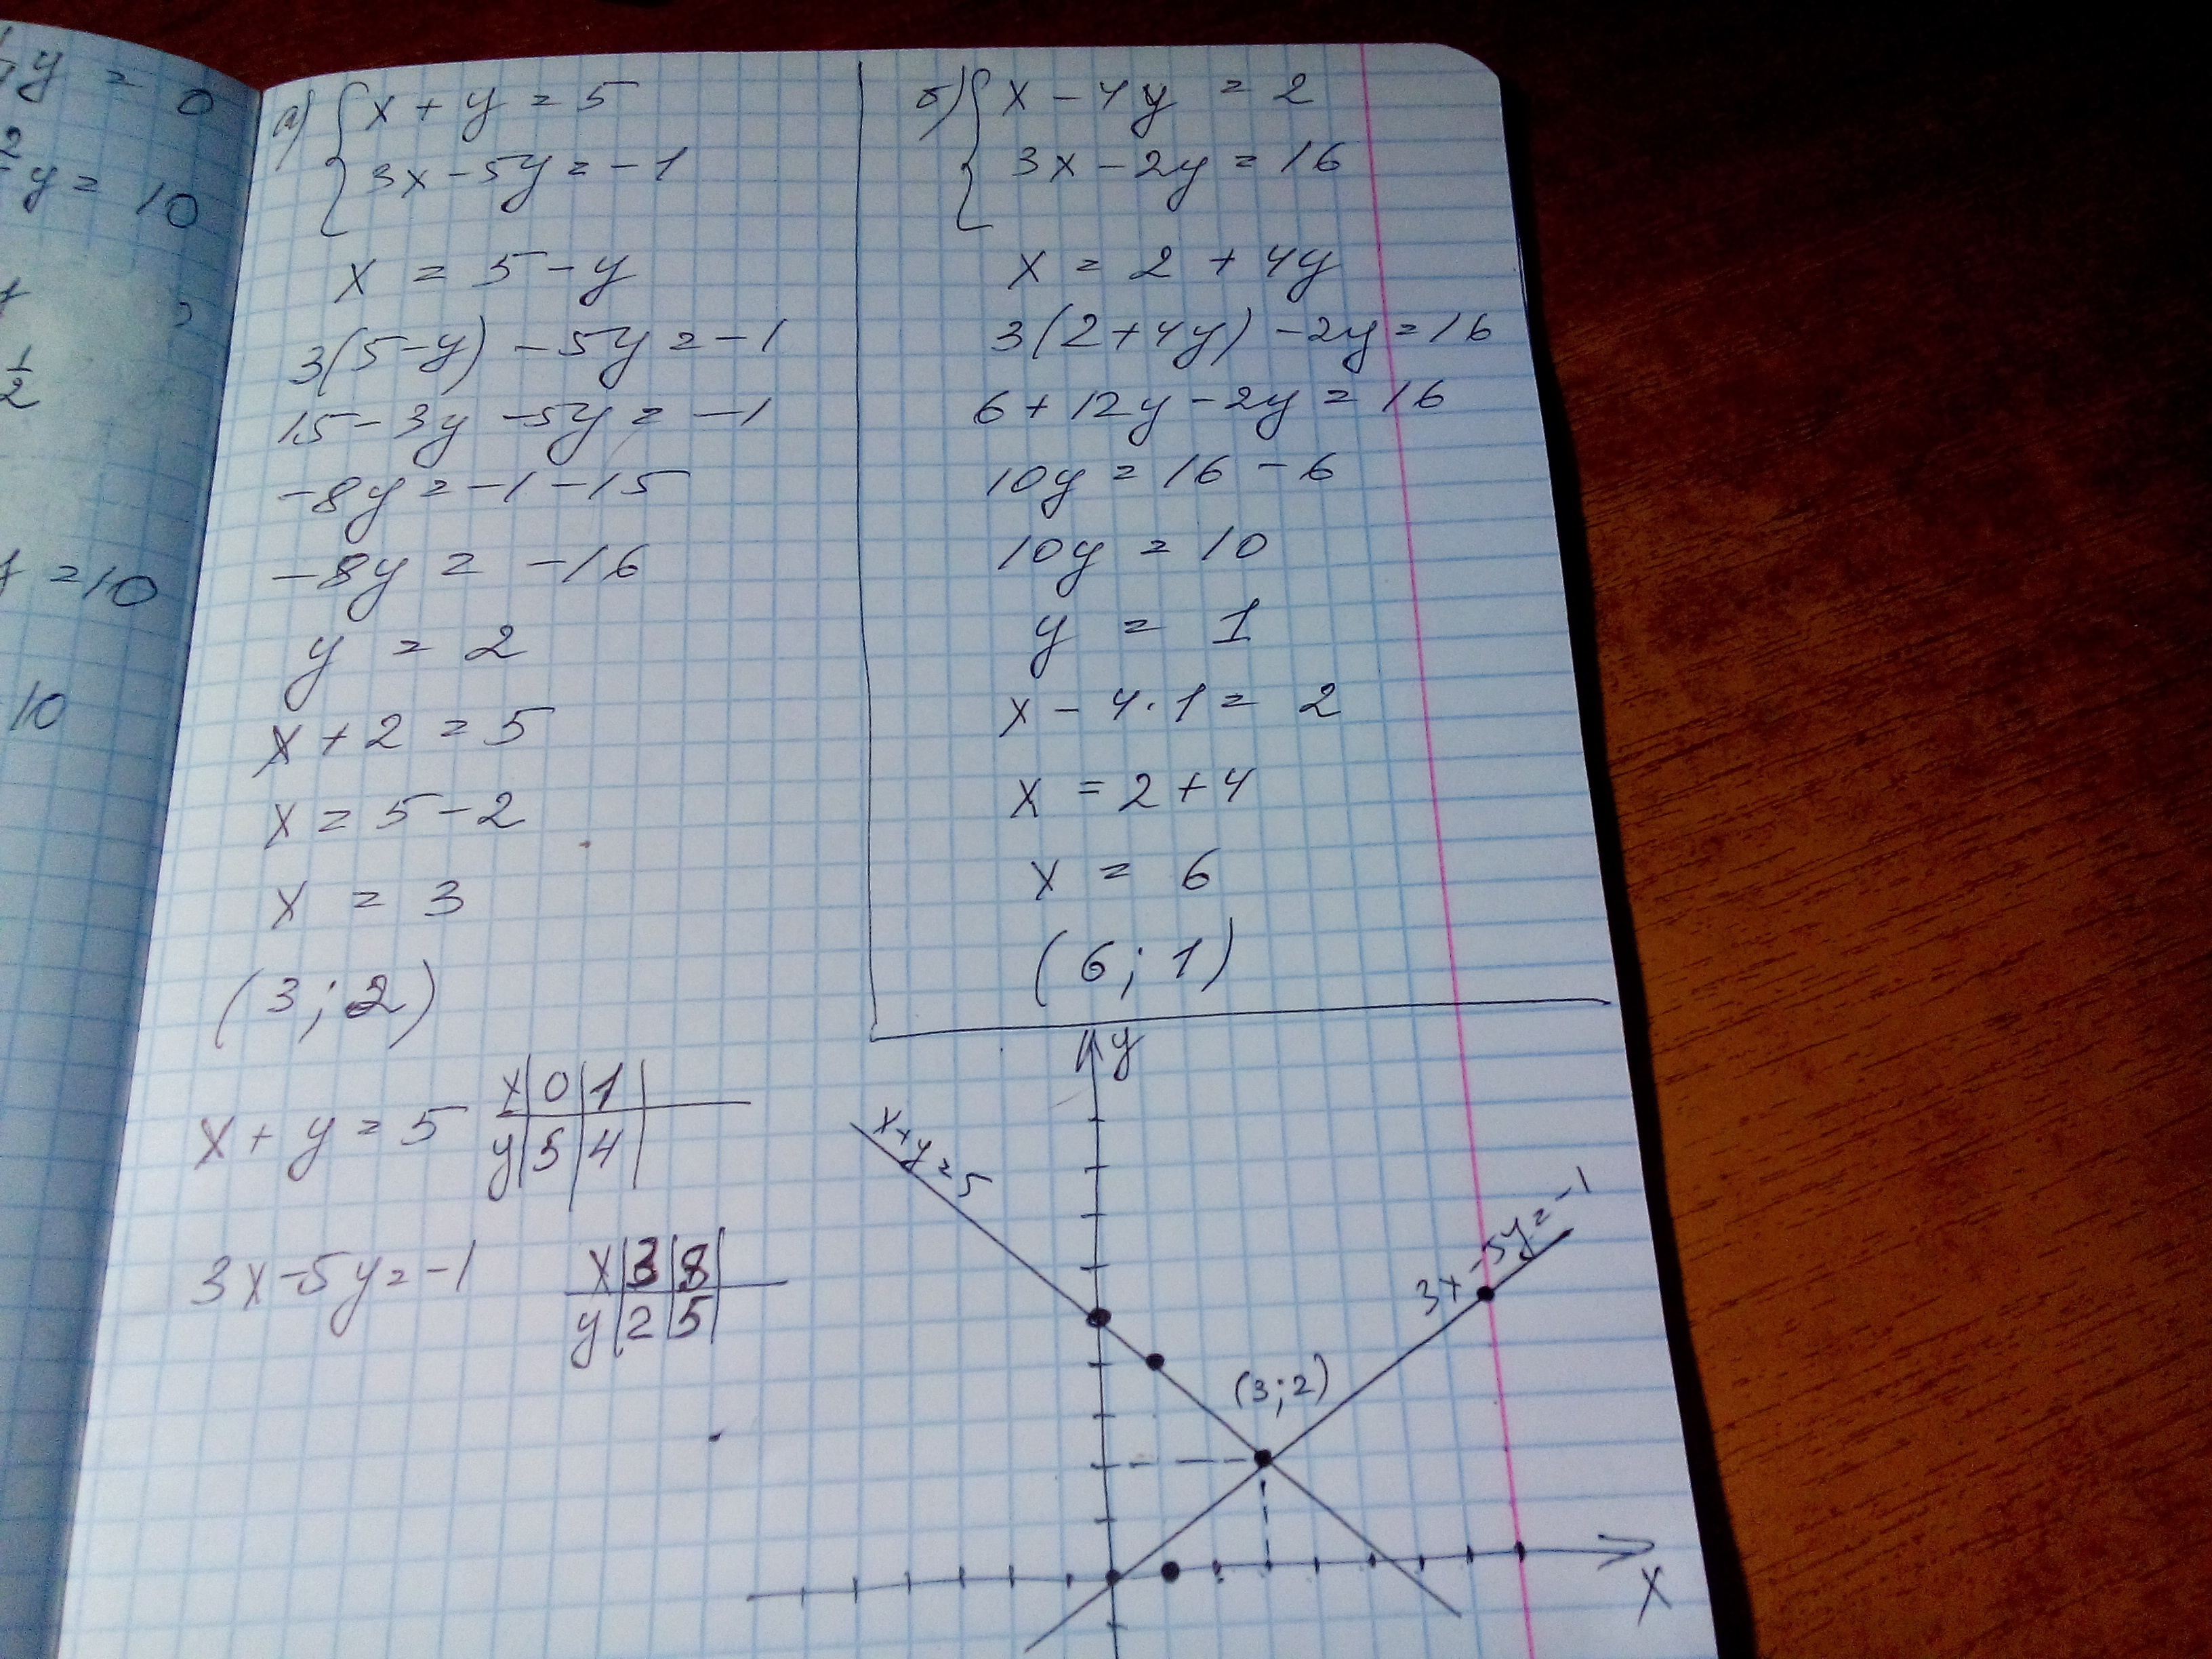 y = 0
y = 10
1/2
= 10
10
а) { x + y = 5
3x - 5y = -1
x = 5 - y
3(5 - y) - 5y = -1
15 - 3y - 5y = -1
-8y = -1 - 15
-8y = -16
y = 2
x + 2 = 5
x = 5 - 2
x = 3
(3; 2)
x + y = 5
x | 0 | 1 |
y | 5 | 4 |
3x - 5y = -1
x | 3 | 8 |
y | 2 | 5 |
б) { x - 4y = 2
3x - 2y = 16
x = 2 + 4y
3(2 + 4y) - 2y = 16
6 + 12y - 2y = 16
10y = 16 - 6
10y = 10
y = 1
x - 4 · 1 = 2
x = 2 + 4
x = 6
(6; 1)
y
x + y = 5
3x - 5y = -1
(3; 2)
x